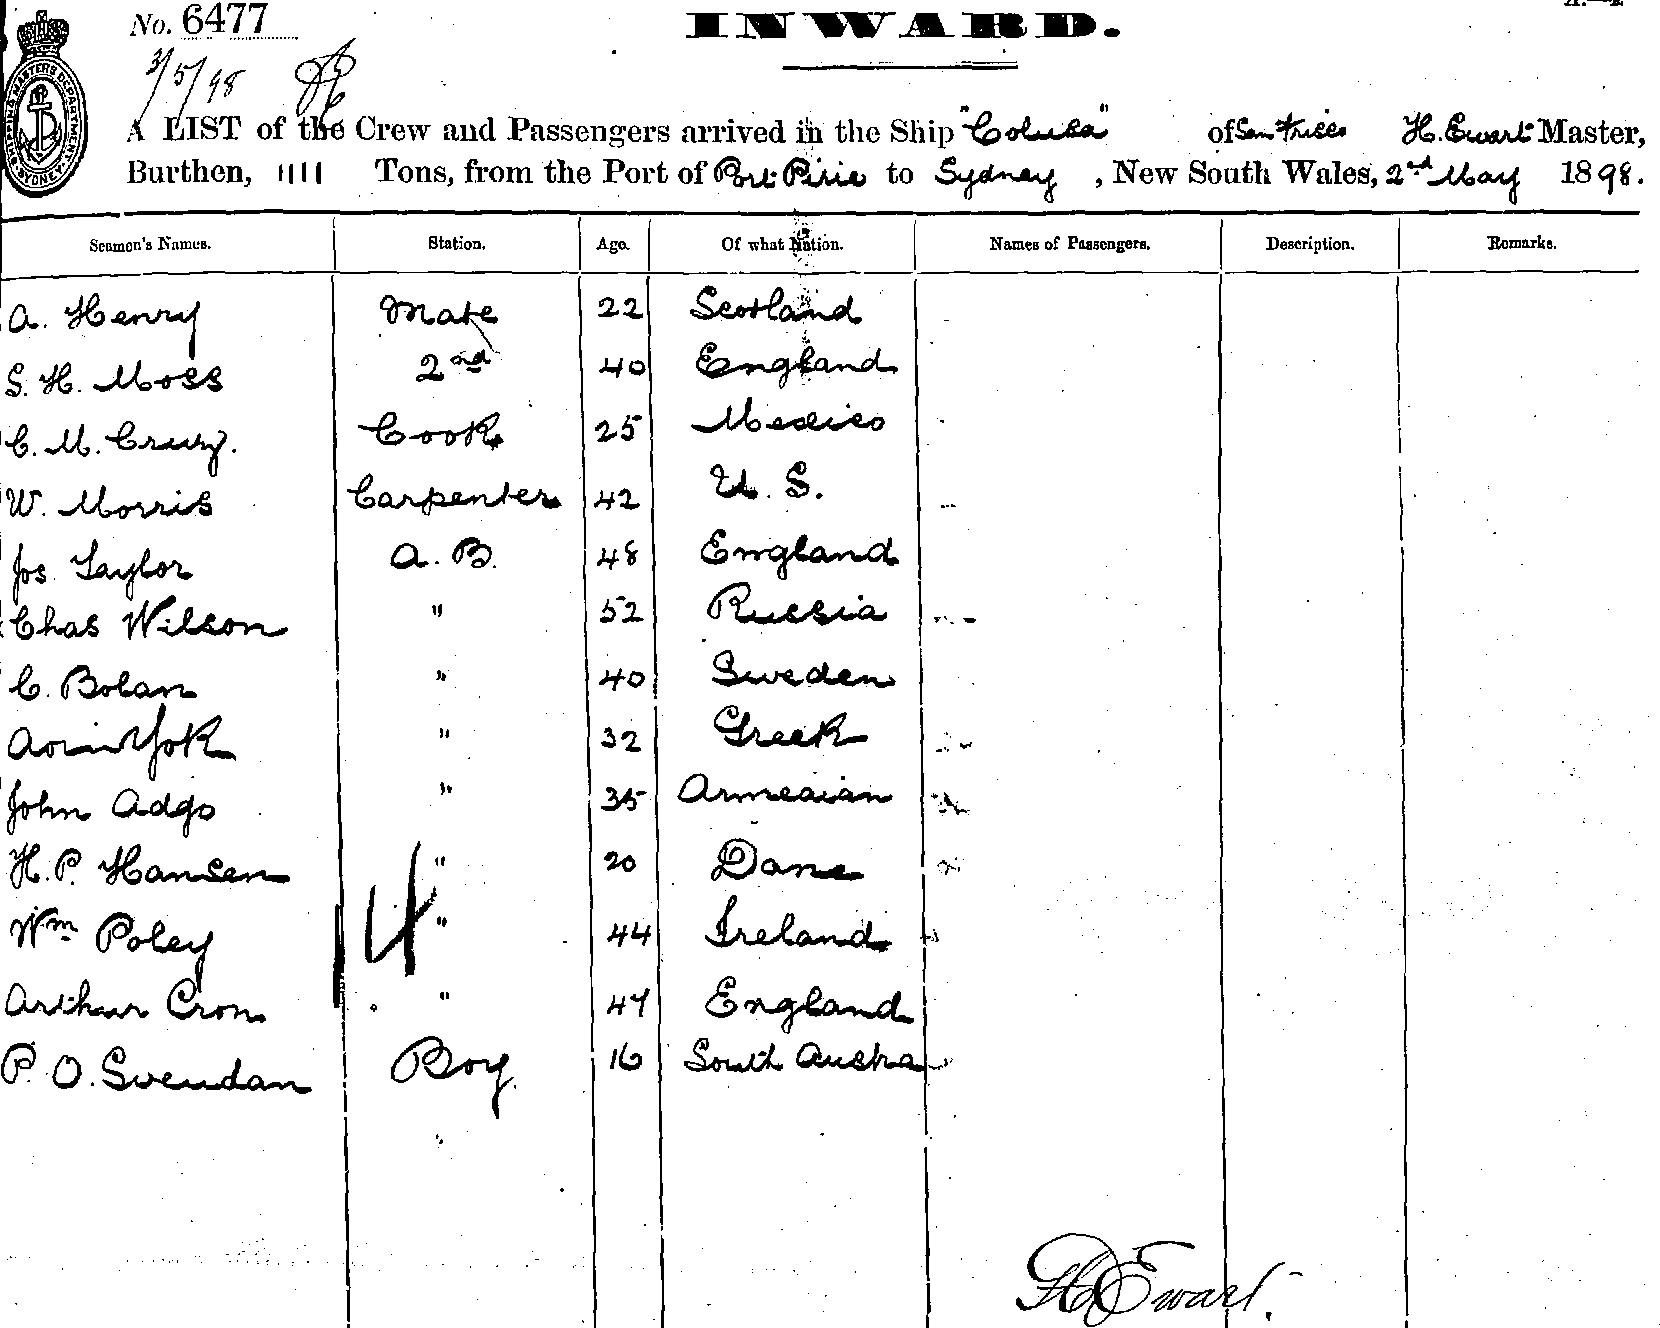 No. 6477
INWARD.
3/5/98
A LIST of the Crew and Passengers arrived in the Ship "Coluba" of San Frisco H. Ewart Master,
Burthen, 1111 Tons, from the Port of Port Pirie to Sydney, New South Wales, 2nd May 1898.
Seamen's Names. Station. Age. Of what Nation. Names of Passengers. Description. Remarks.
A. Henry Mate 22 Scotland
S. H. Moss 2nd 40 England
C. M. Cruz. Cook 25 Mexico
W. Morris Carpenter 42 U. S.
Jos Taylor A. B. 48 England
Chas Wilson " 52 Russia
C. Bolan " 40 Sweden
" 32 Greek
John Adgo " 35 Armeaian
H. P. Hansen " 20 Dane
Wm Poley " 44 Ireland
4
Arthur Cron " 47 England
P. O. Svendan Boy 16 South Austra
H Ewart.